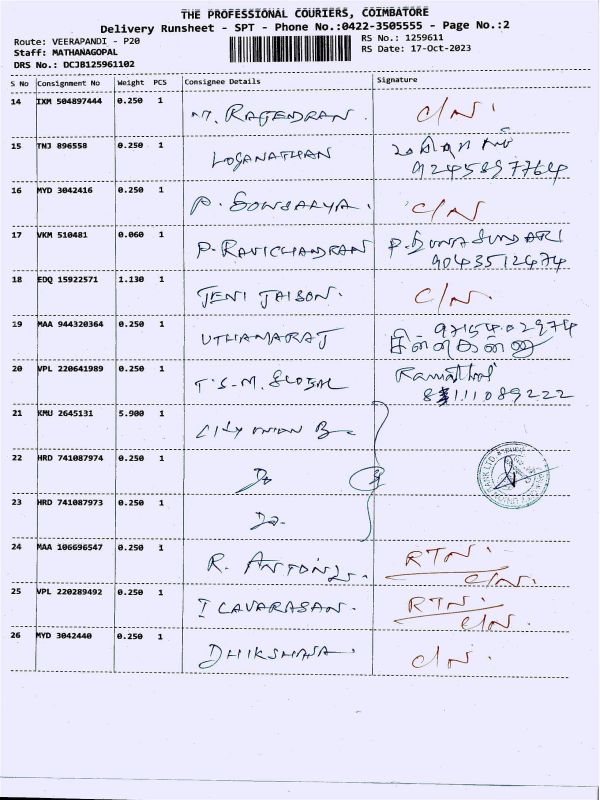 THE PROFESSIONAL COURIERS, COIMBATORE
Delivery Runsheet - SPT - Phone No.:0422-3505555 - Page No.:2
Route: VEERAPANDI - P20
RS No.: 1259611
Staff: MATHANAGOPAL
RS Date: 17-Oct-2023
DRS No.: DCJB125961102
S No Consignment No Weight PCS Consignee Details Signature
14 IXM 504897444 0.250 1 M. RAJENDRAN. C/N.
15 TNJ 896558 0.250 1 LOGANATHAN
9245897764
16 MYD 3042416 0.250 1 P. SOWSARYA. C/N
17 VKM 510481 0.060 1 P. RAVICHANDRAN P. SUNDARI
9043512474
18 EDQ 15922571 1.130 1 JENI JAISON. C/N.
19 MAA 944320364 0.250 1 UTHAMARAJ 9715402974
20 VPL 220641989 0.250 1 T.S.M. GLOBAL
8111089222
21 KMU 2645131 5.900 1 CITY UNION B
22 HRD 741087974 0.250 1 Do
23 HRD 741087973 0.250 1 Do-
24 MAA 106696547 0.250 1 R. ANTONY. RTN.
C/N.
25 VPL 220289492 0.250 1 ILAVARASAN. RTN.
C/N
26 MYD 3042440 0.250 1 DHIKSHANA. C/N.